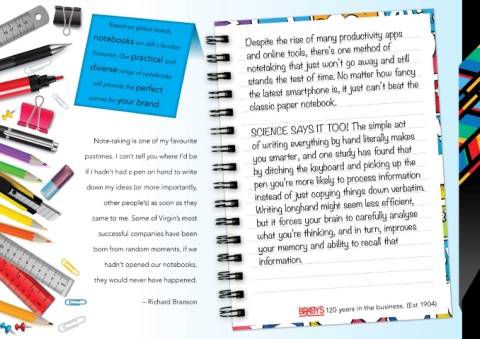 Based on global trends
notebooks are still a familiar
favourite. Our practical and
diverse range of notebooks
will provide the perfect
canvas for your brand.
Note-taking is one of my favourite
pastimes. I can't tell you where I'd be
if I hadn't had a pen on hand to write
down my ideas (or more importantly,
other people's) as soon as they
came to me. Some of Virgin's most
successful companies have been
born from random moments, if we
hadn't opened our notebooks,
they would never have happened.
– Richard Branson
Despite the rise of many productivity apps
and online tools, there's one method of
notetaking that just won't go away and still
stands the test of time. No matter how fancy
the latest smartphone is, it just can't beat the
classic paper notebook.
SCIENCE SAYS IT TOO! The simple act
of writing everything by hand literally makes
you smarter, and one study has found that
by ditching the keyboard and picking up the
pen you're more likely to process information
instead of just copying things down verbatim.
Writing longhand might seem less efficient,
but it forces your brain to carefully analyse
what you're thinking, and in turn, improves
your memory and ability to recall that
information.
BRABYS 120 years in the business. (Est 1904)